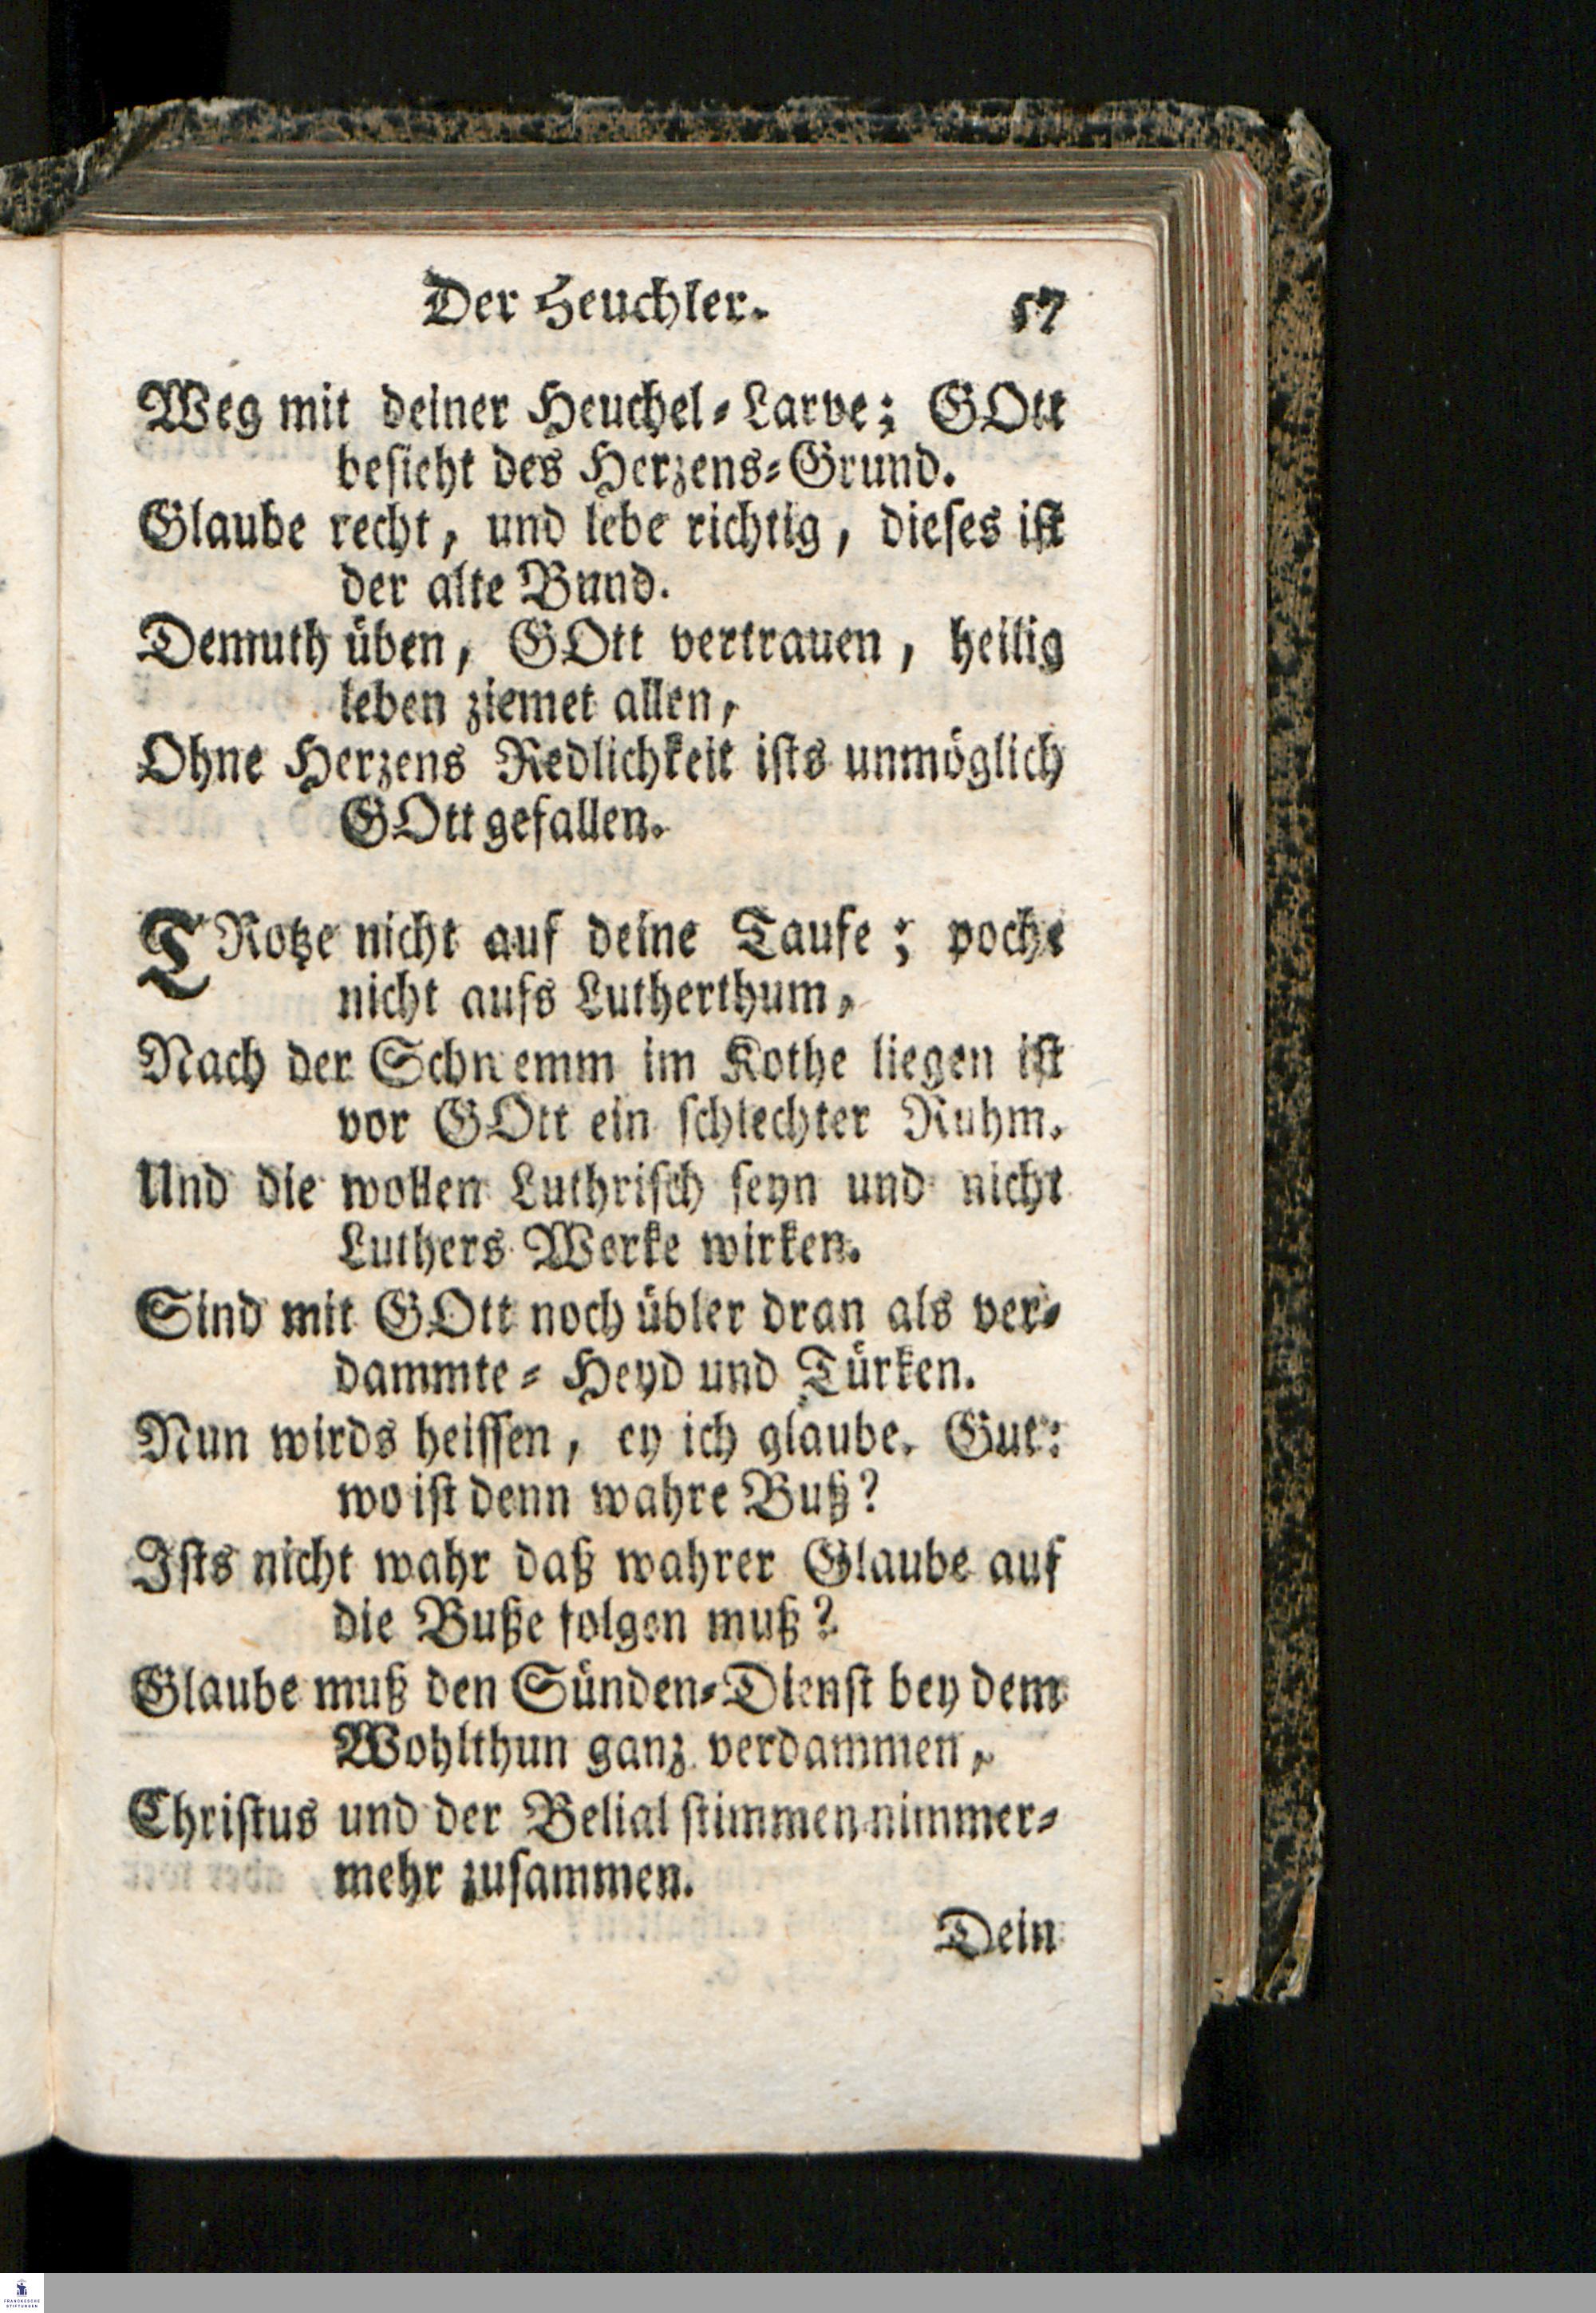 Der Heuchler. 57
Weg mit deiner Heuchel-Larve; GOtt
besieht des Herzens-Grund.
Glaube recht, und lebe richtig, dieses ist
der alte Bund.
Demuth üben, GOtt vertrauen, heilig
leben ziemet allen,
Ohne Herzens Redlichkeit ists unmöglich
GOtt gefallen.
TRotze nicht auf deine Taufe; poche
nicht aufs Lutherthum,
Nach der Schwemm im Kothe liegen ist
vor GOtt ein schlechter Ruhm.
Und die wollen Luthrisch seyn und nicht
Luthers Werke wirken.
Sind mit GOtt noch übler dran als ver-
dammte- Heyd und Türken.
Nun wirds heissen, ey ich glaube. Gut:
wo ist denn wahre Buß?
Ists nicht wahr daß wahrer Glaube auf
die Buße folgen muß?
Glaube muß den Sünden-Dienst bey dem
Wohlthun ganz verdammen,
Christus und der Belial stimmen nimmer-
mehr zusammen.
Dein
FRANCKESCHE
STIFTUNGEN